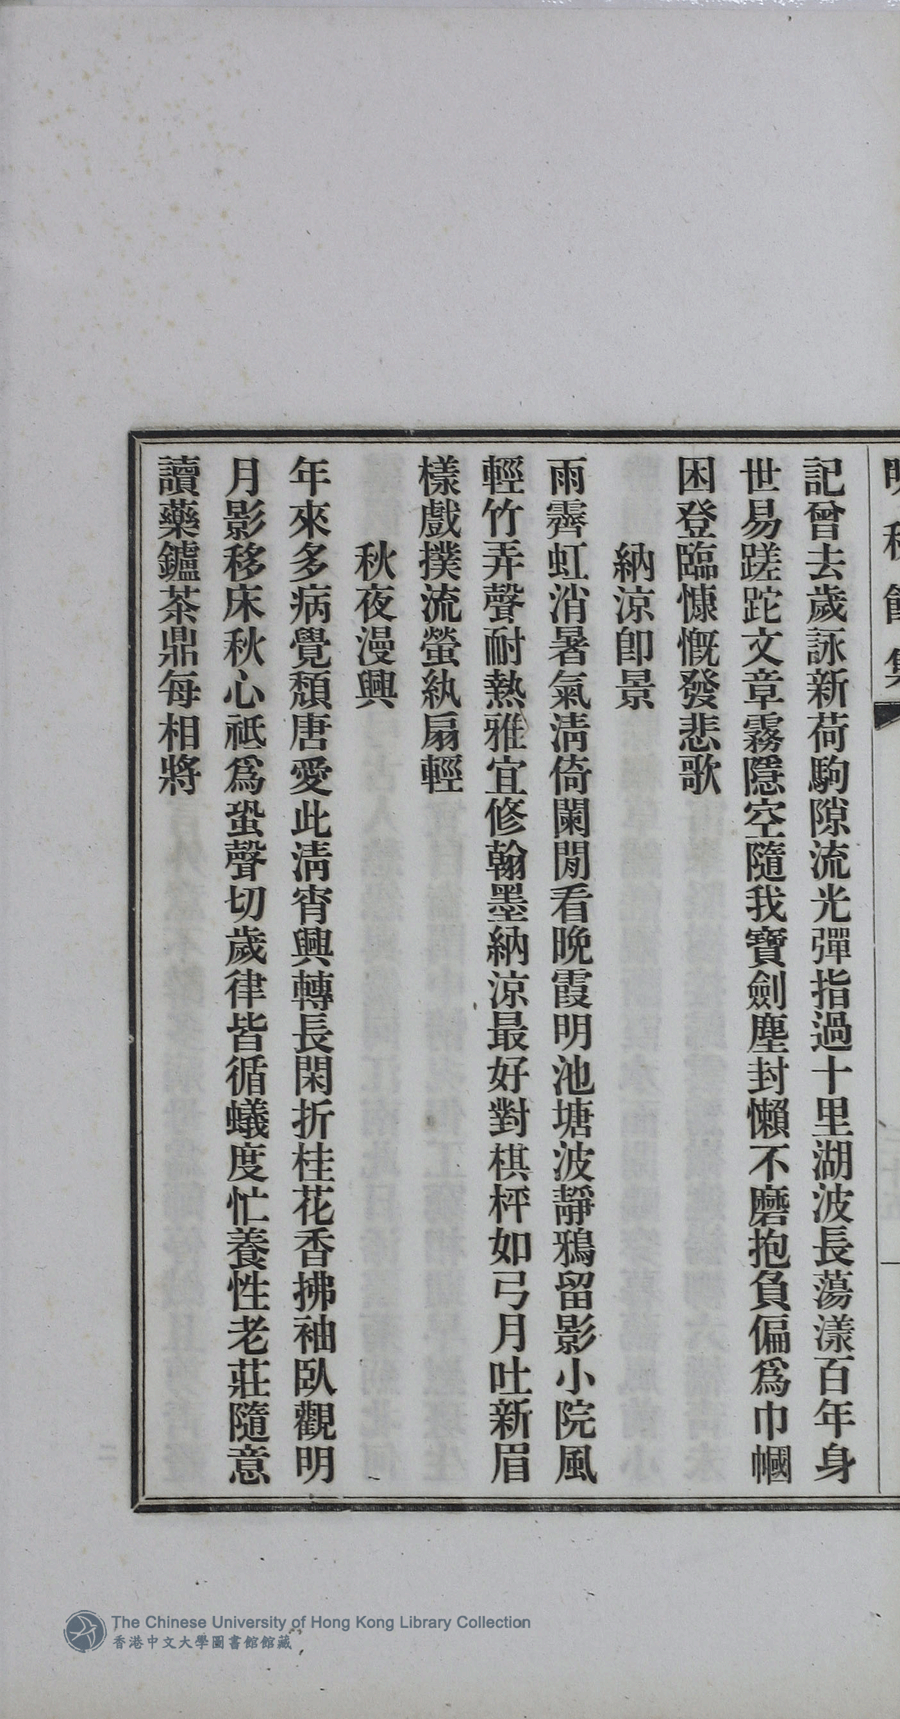 記曾去歲詠新荷駒隙流光彈指過十里湖波長蕩漾百年身
世易蹉跎文章霧隱空隨我寶劍塵封懶不磨抱負偏爲巾幗
困登臨慷慨發悲歌
納涼卽景
雨霽虹消暑氣淸倚闌閒看晚霞明池塘波靜鴉留影小院風
輕竹弄聲耐熱雅宜修翰墨納涼最好對棋枰如弓月吐新眉
樣戲撲流螢紈扇輕
秋夜漫興
年來多病覺頹唐愛此淸宵興轉長閑折桂花香拂袖臥觀明
月影移床秋心祗爲蛩聲切歲律皆循蟻度忙養性老莊隨意
讀藥鑪茶鼎每相將
The Chinese University of Hong Kong Library Collection
香港中文大學圖書館館藏